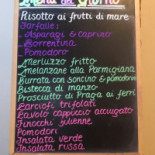 Menu del Giorno
Risotto ai frutti di mare
Farfalle:
- Asparagi & Caprino
- Sorrentina
- Pomodoro
Merluzzo fritto
Melanzane alla Parmigiana
Burrata con soncino & pomodorini
Bistecca di manzo
Prosciutto di Praga ai ferri
Carciofi trifolati
Cavolo cappuccio arricciato
Finocchi julienne
Pomodori
Insalata verde
Insalata russa